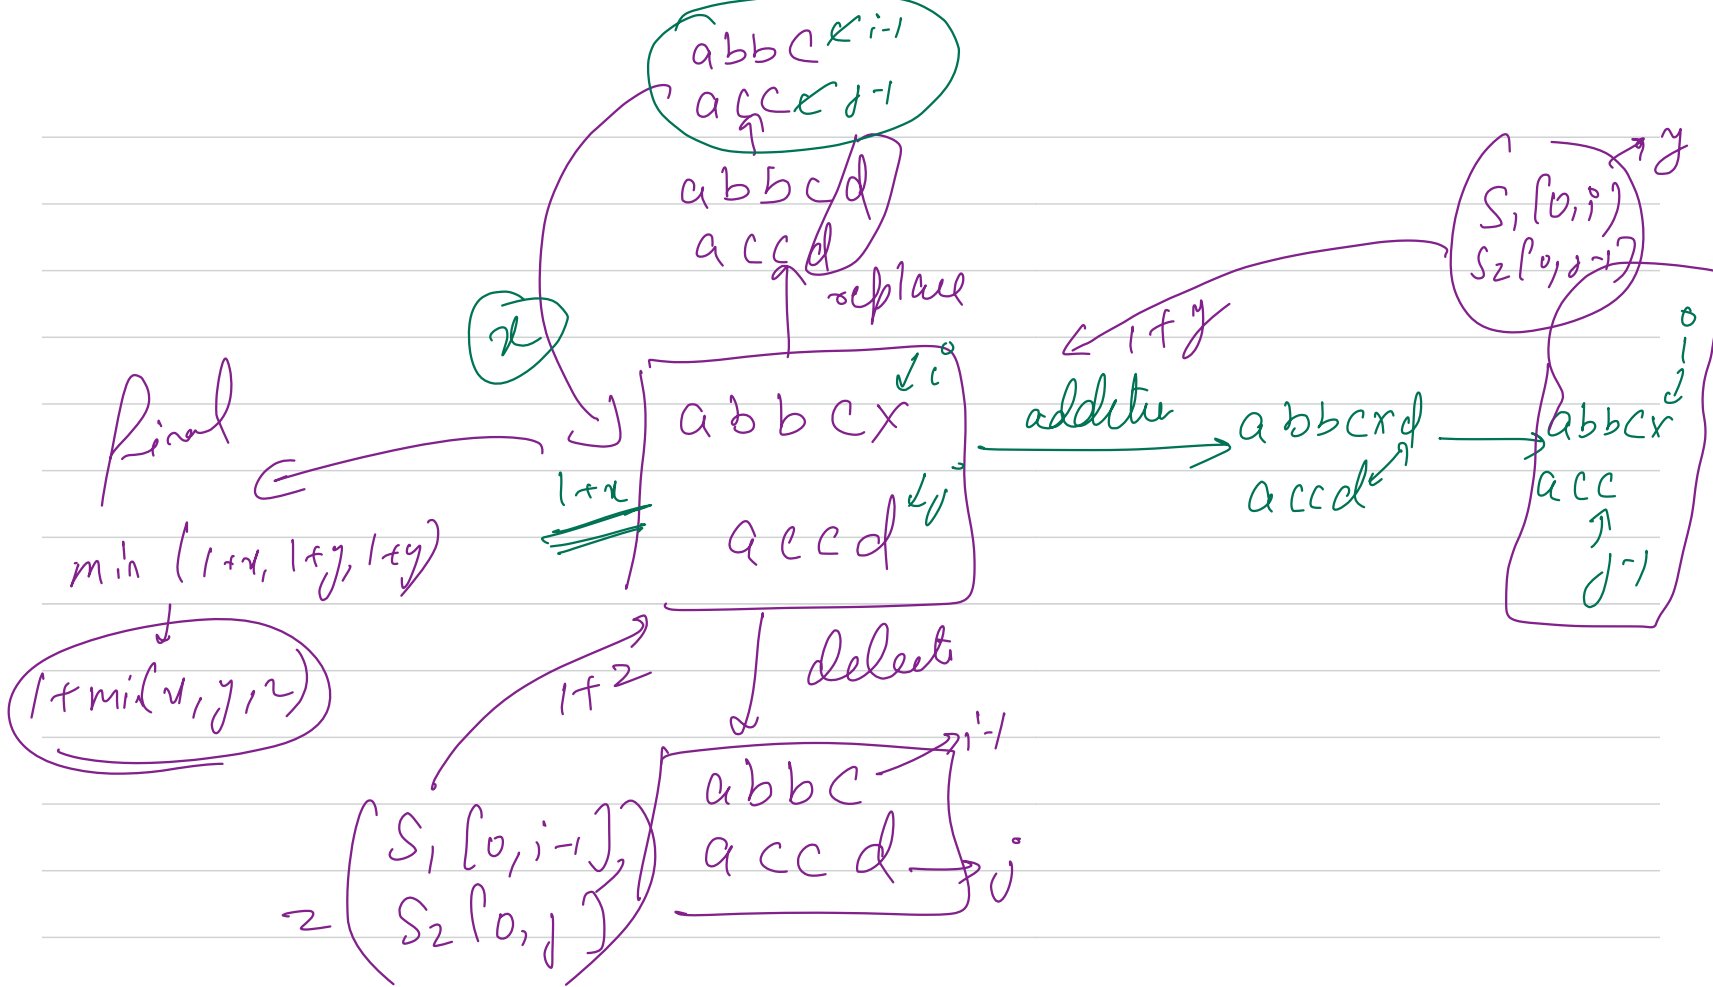 abbc ← i-1
acc ← j-1
abbcd
accd
replace
x
y
S1[0,i)
S2[0,j-1)
1+y
i
abbcx
j
accd
1+x
addition
abbcxd
accd
i
abbcx
acc
j-1
final
min (1+x, 1+y, 1+y)
1+min(x,y,z)
1+z
delete
abbc → i-1
accd → j
z
S1[0,i-1],
S2[0,j]